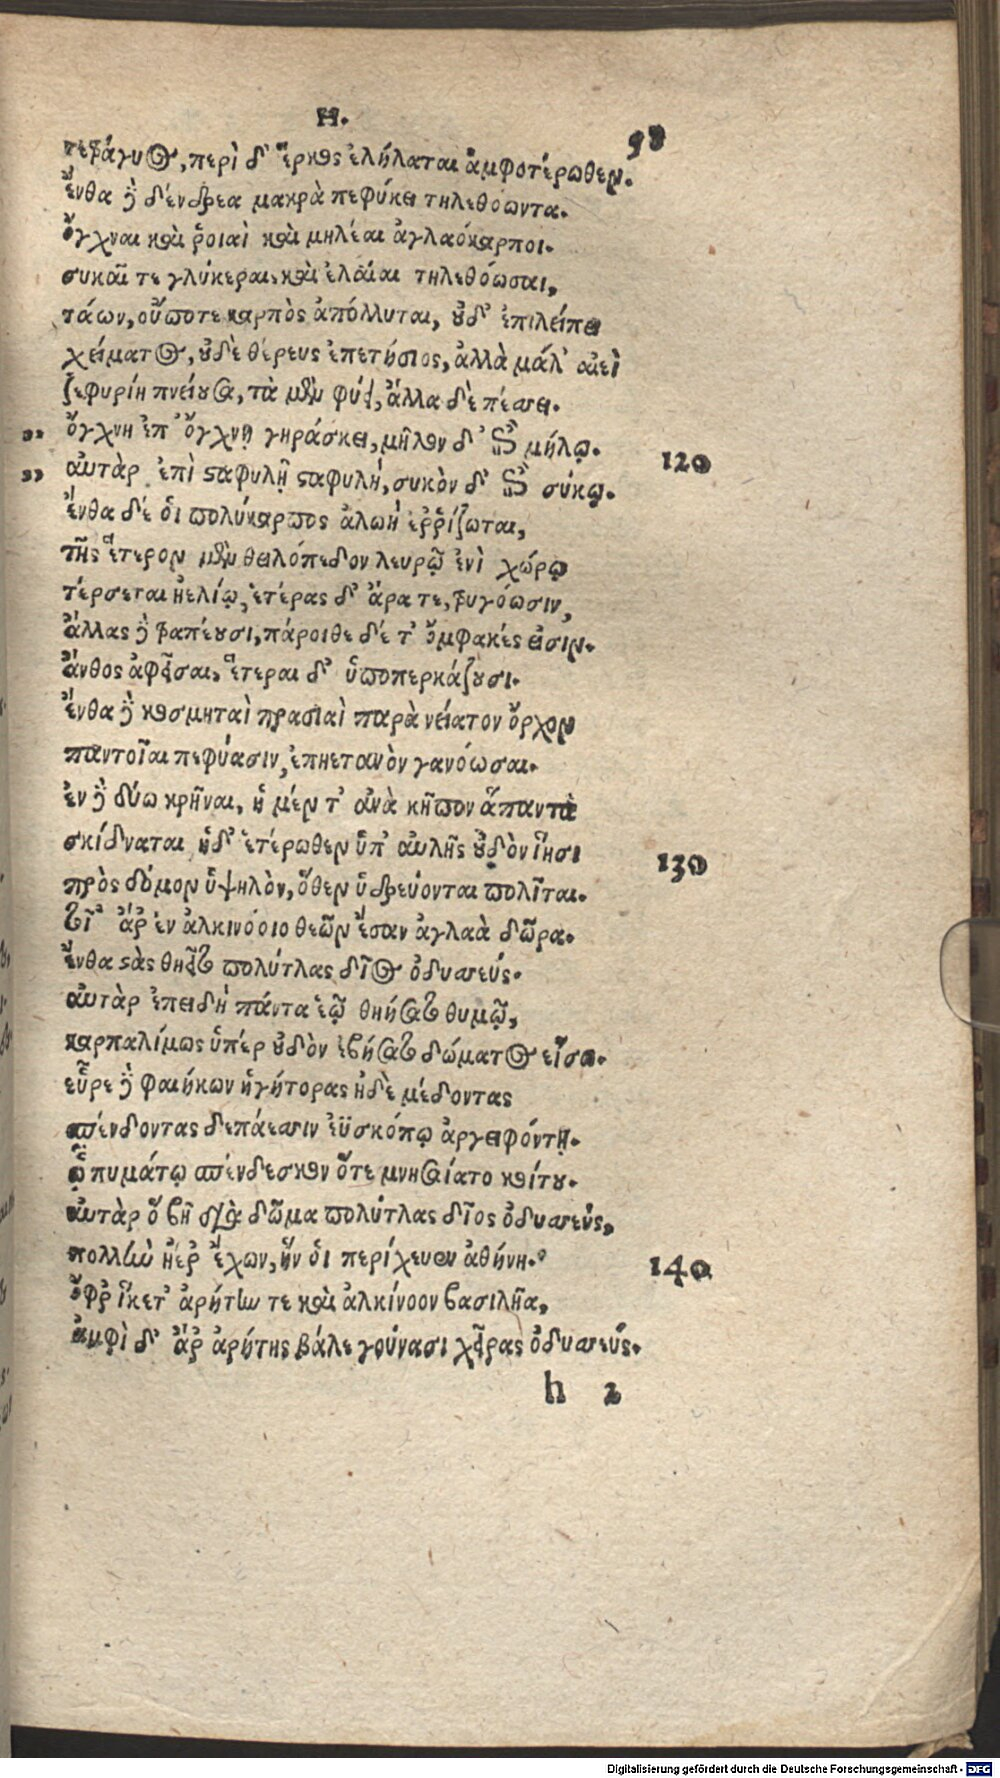 Η.
98
τετράγυος, περὶ δ' ἕρκος ἐλήλαται ἀμφοτέρωθεν.
ἔνθα δὲ δένδρεα μακρὰ πεφύκει τηλεθόωντα.
ὄγχναι καὶ ῥοιαὶ καὶ μηλέαι ἀγλαόκαρποι.
συκαῖ τε γλύκεραι, καὶ ἐλαῖαι τηλεθόωσαι,
τάων, οὔποτε καρπὸς ἀπόλλυται, οὐδ' ἐπιλείπει
χείματος, οὐδὲ θέρευς ἐπετήσιος, ἀλλὰ μάλ' αἰεὶ
ζεφυρίη πνείουσα, τὰ μὲν φύει, ἄλλα δὲ πέσσει.
" ὄγχνη ἐπ' ὄγχνῃ γηράσκει, μῆλον δ' ἐπὶ μήλῳ. 120
" αὐτὰρ ἐπὶ σταφυλῇ σταφυλή, συκὸν δ' ἐπὶ σύκῳ.
ἔνθα δέ οἱ πολύκαρπος ἀλωὴ ἐῤῥίζωται,
τῆς ἕτερον μὲν θειλόπεδον λευρῷ ἐνὶ χώρῳ
τέρσεται ἠελίῳ, ἑτέρας δ' ἄρα τε, τρυγόωσιν,
ἄλλας δὲ τραπέουσι, πάροιθε δέ τ' ὄμφακές εἰσιν.
ἄνθος ἀφεῖσαι, ἕτεραι δ' ὑποπερκάζουσι.
ἔνθα δὲ κοσμηταὶ πρασιαὶ παρὰ νείατον ὄρχον
παντοῖαι πεφύασιν, ἐπηετανὸν γανόωσαι.
ἐν δὲ δύω κρῆναι, ἡ μέν τ' ἀνὰ κῆπον ἅπαντα
σκίδναται ἡδ' ἑτέρωθεν ὑπ' αὐλῆς οὐδὸν ἵησι 130
πρὸς δόμον ὑψηλὸν, ὅθεν ὑδρεύονται πολῖται.
τοῖ' ἄρ' ἐν ἀλκινόοιο θεῶν ἔσαν ἀγλαὰ δῶρα.
ἔνθα στὰς θηεῖτο πολύτλας δῖος ὀδυσσεύς.
αὐτὰρ ἐπειδὴ πάντα ἑῷ θηήσατο θυμῷ,
καρπαλίμως ὑπὲρ οὐδὸν ἐβήσατο δώματος εἴσω.
εὗρε δὲ φαιήκων ἡγήτορας ἠδὲ μέδοντας
σπένδοντας δεπάεσσιν ἐϋσκόπῳ ἀργειφόντῃ.
ᾧ πυμάτῳ σπένδεσκον ὅτε μνησαίατο κοίτου.
αὐτὰρ ὃ βῆ διὰ δῶμα πολύτλας δῖος ὀδυσσεύς,
πολλὴν ἠέρ' ἔχων, ἥν οἱ περίχευεν ἀθήνη. 140
ὄφρ' ἵκετ' ἀρήτην τε καὶ ἀλκίνοον βασιλῆα,
ἀμφὶ δ' ἄρ' ἀρήτης βάλε γούνασι χεῖρας ὀδυσσεύς.
h 2
Digitalisierung gefördert durch die Deutsche Forschungsgemeinschaft - DFG